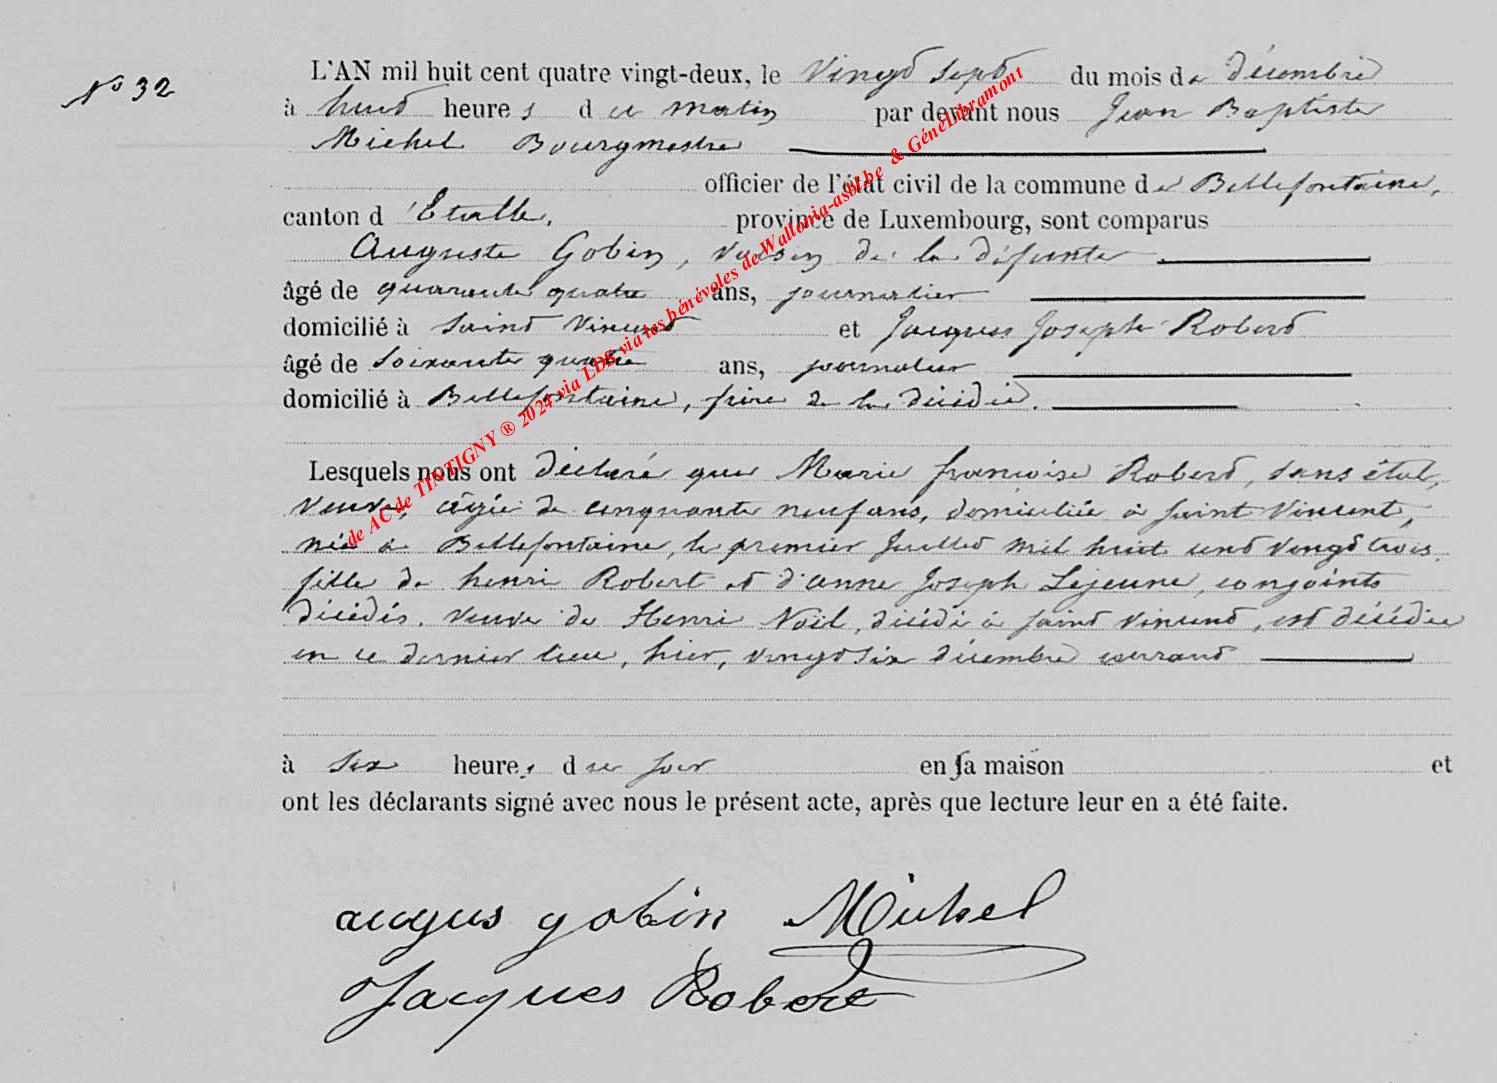 N° 32
L'AN mil huit cent quatre vingt-deux, le Vingt Sept du mois de décembre
à huit heures du matin par devant nous Jean Baptiste
Michel Bourgmestre
officier de l'état civil de la commune de Bellefontaine,
canton d'Etalle, province de Luxembourg, sont comparus
Auguste Gobin, voisin de la défunte
âgé de quarante quatre ans, journalier
domicilié à Saint Vincent et Jacques Joseph Robert
âgé de soixante quatre ans, journalier
domicilié à Bellefontaine, frère de la décédée.
Lesquels nous ont déclaré que Marie françoise Robert, sans état,
veuve, âgée de cinquante neuf ans, domiciliée à Saint Vincent,
née à Bellefontaine, le premier Juillet mil huit cent vingt trois.
fille de henri Robert et d'anne Joseph Lejeune, conjoints
décédés. veuve de Henri Noël, décédé à Saint Vincent, est décédée
en ce dernier lieu, hier, vingt six décembre courant
à six heures du soir en sa maison et
ont les déclarants signé avec nous le présent acte, après que lecture leur en a été faite.
augus gobin Michel
Jacques Robert
de AC de TINTIGNY ® 2024 via LDS via les bénévoles de Wallonia-asbl.be & GénéLibramont